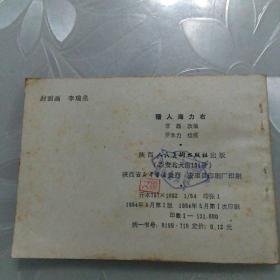 封面画 李瑞岳
猎人海力布
改编
绘画
陕西人民美术出版社出版
(西安北大街131号)
陕西省新华书店发行 印刷厂印刷
开本787×1092 1/64 印张1
1984年5月第1版 1984年5月第1次印刷
印数1—131,800
统一书号:8199·719 定价:0.12元